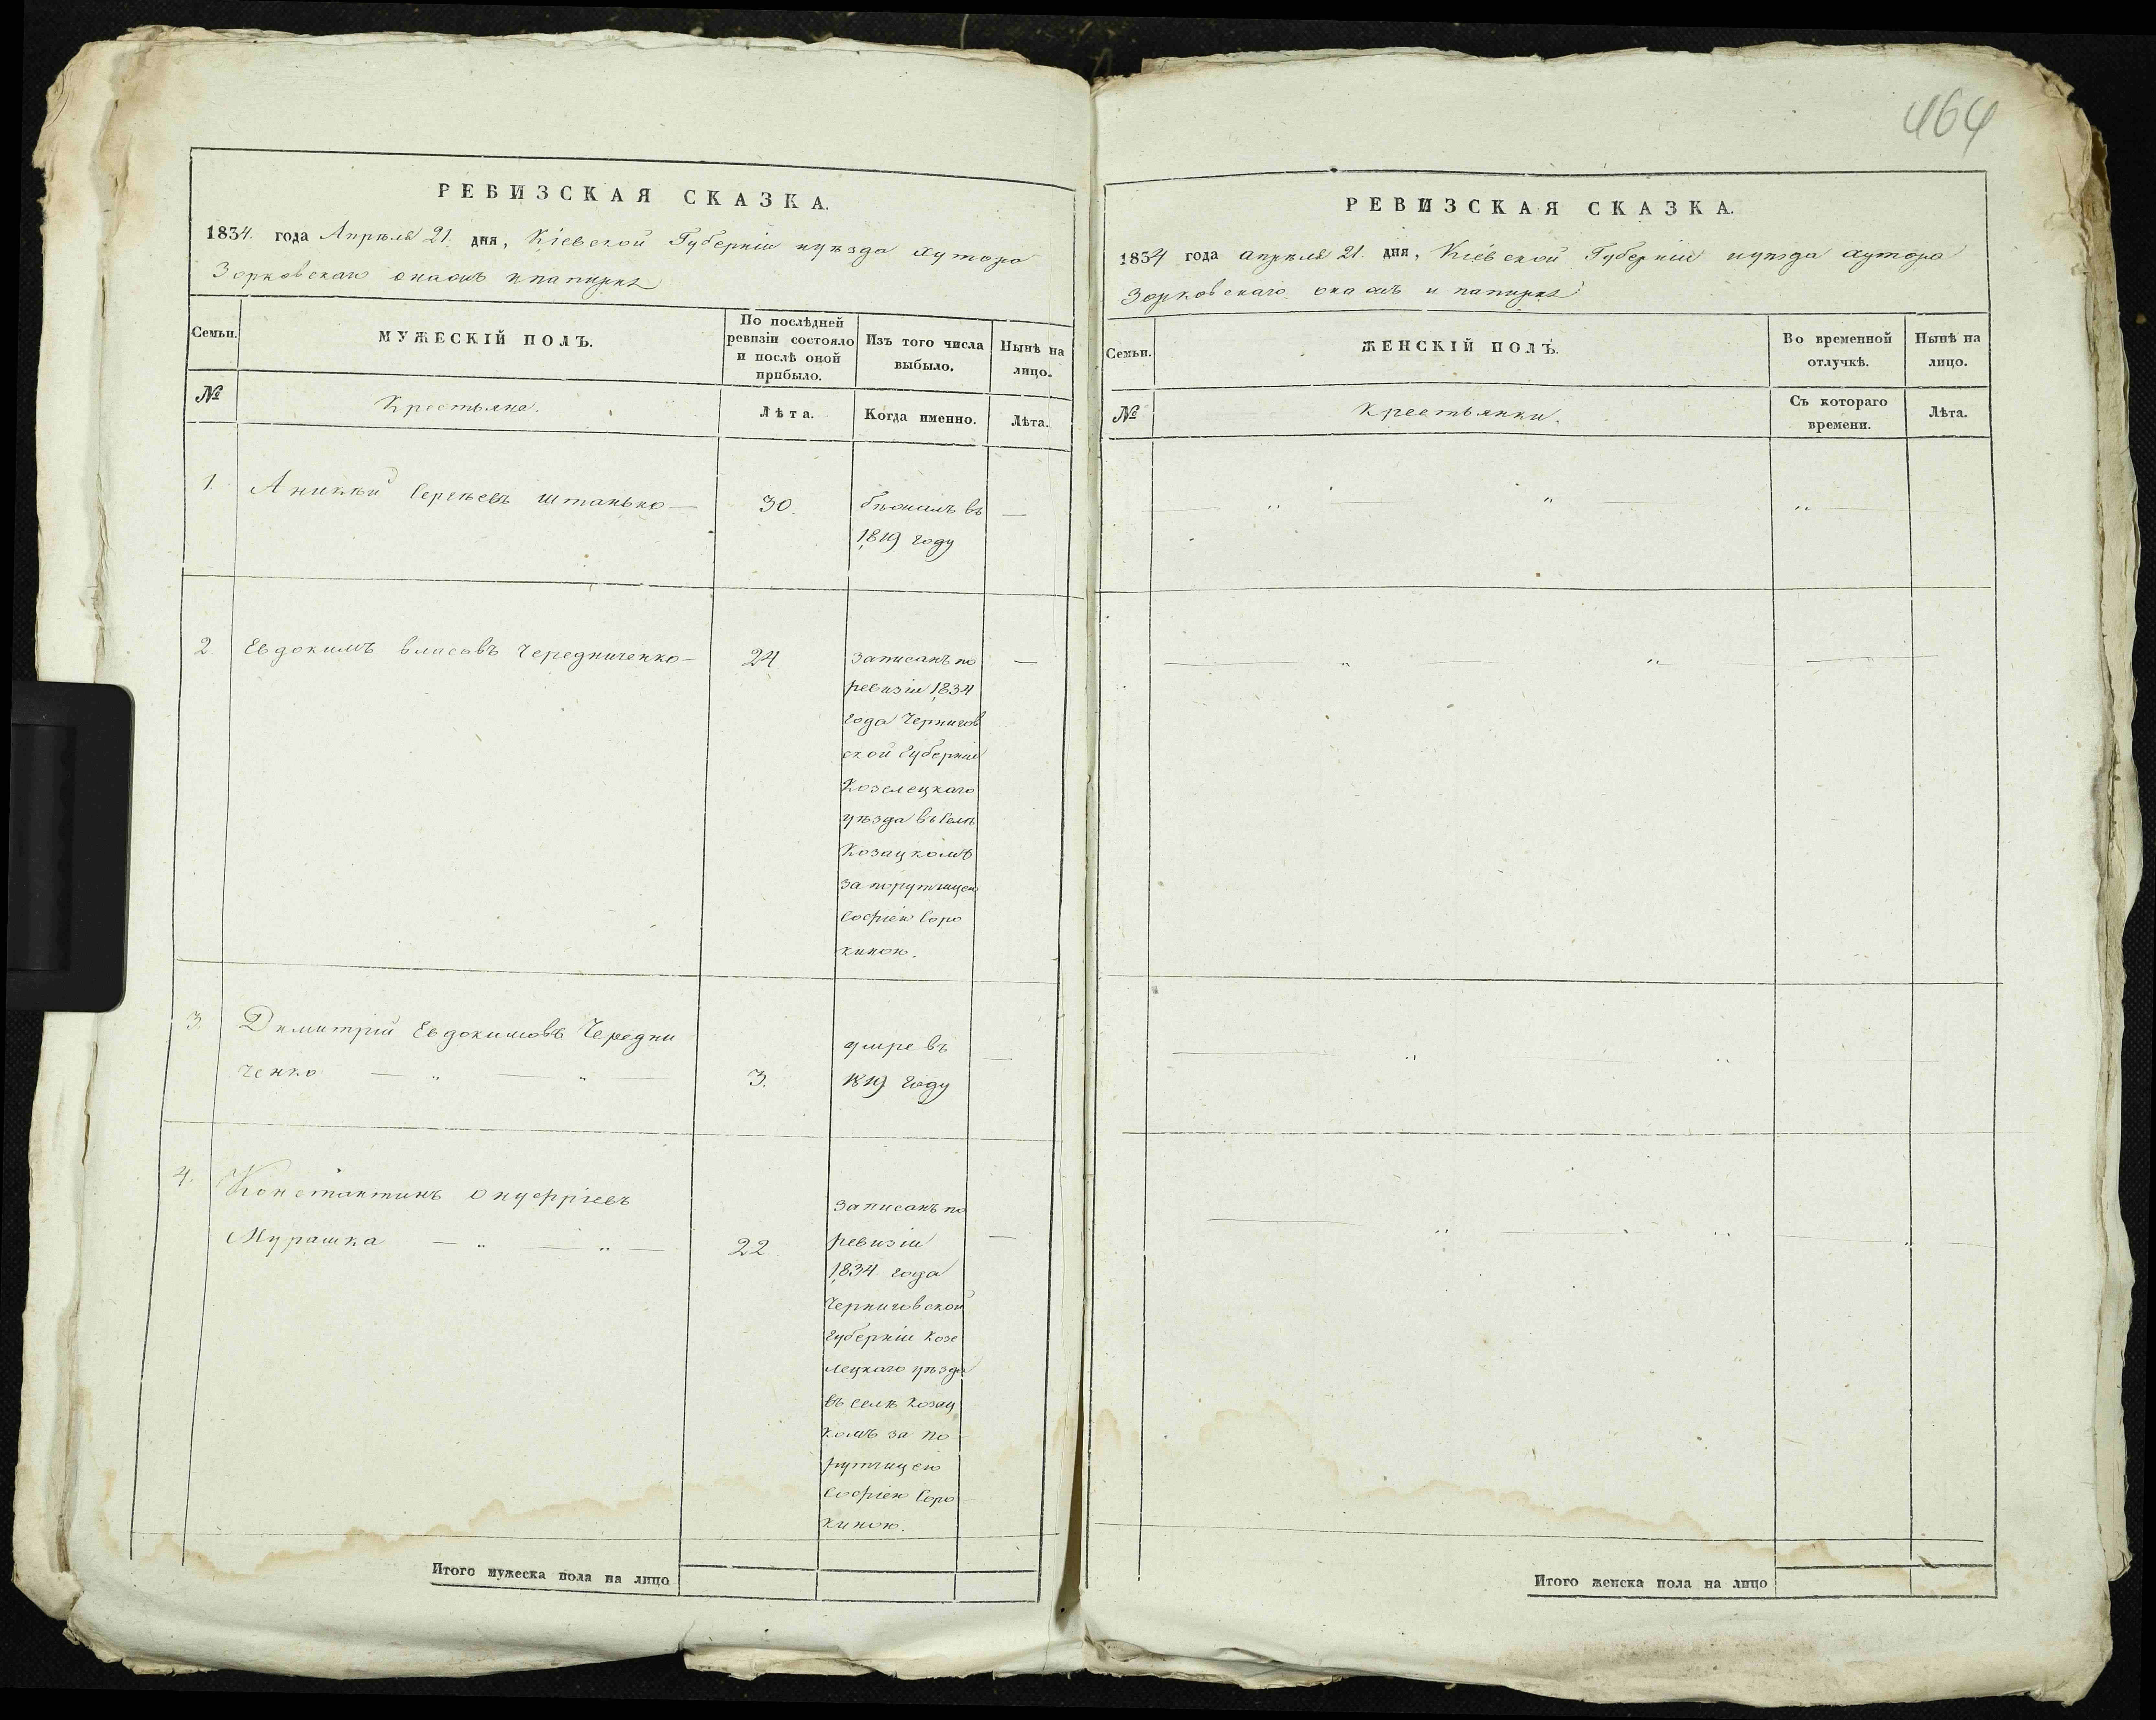 464
РЕВИЗСКАЯ СКАЗКА.
1834. года Апрѣля 21. дня, Кіевской Губерніи иуѣзда хутора
Зорковскаго
Семьи.
МУЖЕСКІЙ ПОЛЪ.
По послѣдней ревизіи состояло и послѣ оной прибыло.
Изъ того числа выбыло.
Нынѣ на лицо.
№
Крестьяне.
Лѣта.
Когда именно.
Лѣта.
1. Аникѣй Сергѣевъ Штанько — 30. бѣжалъ въ —
1819 году
2. Евдокимъ Власовъ Чередниченко — 24 записанъ по —
ревизіи 1834
года Чернигов
ской Губерніи
Козелецкаго
уѣзда въ Селѣ
Козацкомъ
за порутчицею
Софіею Соро
киною.
3. Димитрій Евдокимовъ Чередни
ченко — „ — „ — 3. умре въ —
1819 году
4. Константинъ Онуфріевъ
Мурашка — „ — „ — 22 записанъ по
ревизіи —
1834 года
Черниговской
Губерніи Козе
лецкаго уѣзда
въ селѣ Козац
комъ за по
рутчицею
Софіею Соро
киною.
Итого мужеска пола на лицо
РЕВИЗСКАЯ СКАЗКА.
1834 года апрѣля 21. дня, Кіевской Губерніи иуѣзда хутора
Зорковскаго
Семьи.
ЖЕНСКІЙ ПОЛЪ.
Во временной отлучкѣ.
Нынѣ на лицо.
№
Крестьянки.
Съ котораго времени.
Лѣта.
Итого женска пола на лицо